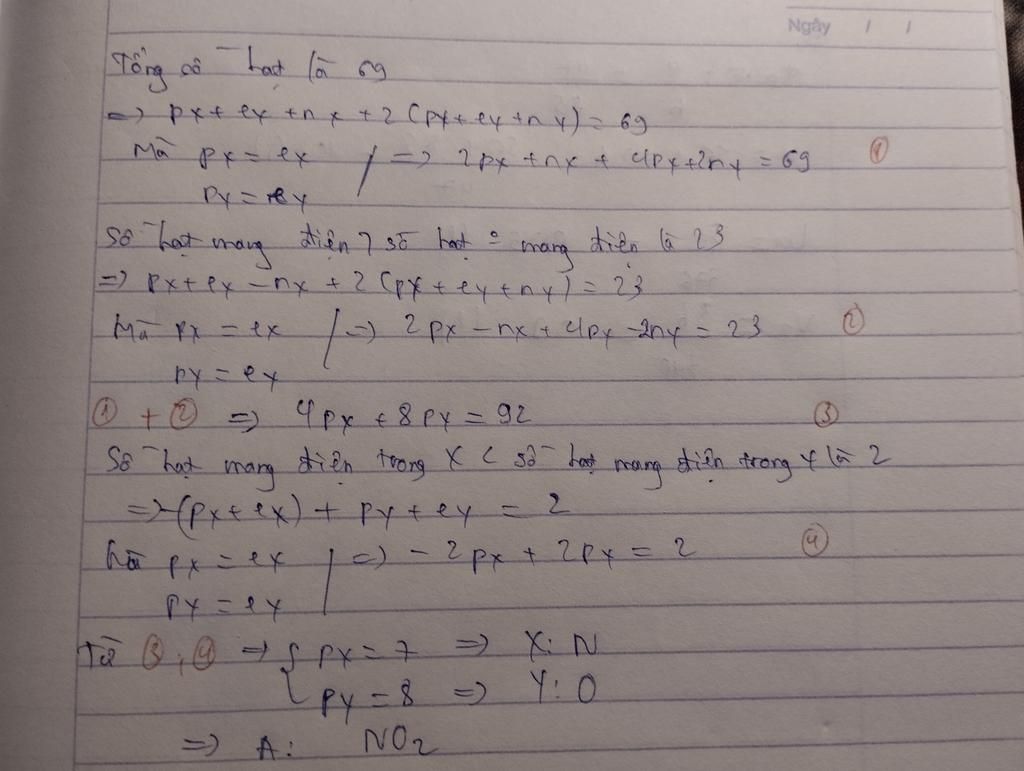 Ngày / /
Tổng số hạt là 69
=> px + ex + nx + 2(py + ey + ny) = 69
Mà px = ex / => 2px + nx + 4py + 2ny = 69 ①
py = ey
Số hạt mang điện > số hạt ° mang điện là 23
=> px + ex - nx + 2(py + ey + ny) = 23
Mà px = ex / => 2px - nx + 4py - 2ny = 23 ②
py = ey
① + ② => 4px + 8py = 92 ③
Số hạt mang điện trong X < số hạt mang điện trong Y là 2
=> -(px + ex) + py + ey = 2
Mà px = ex / => - 2px + 2py = 2 ④
py = ey
Từ ③, ④ => { px = 7 => X: N
py = 8 => Y: O
=> A: NO2